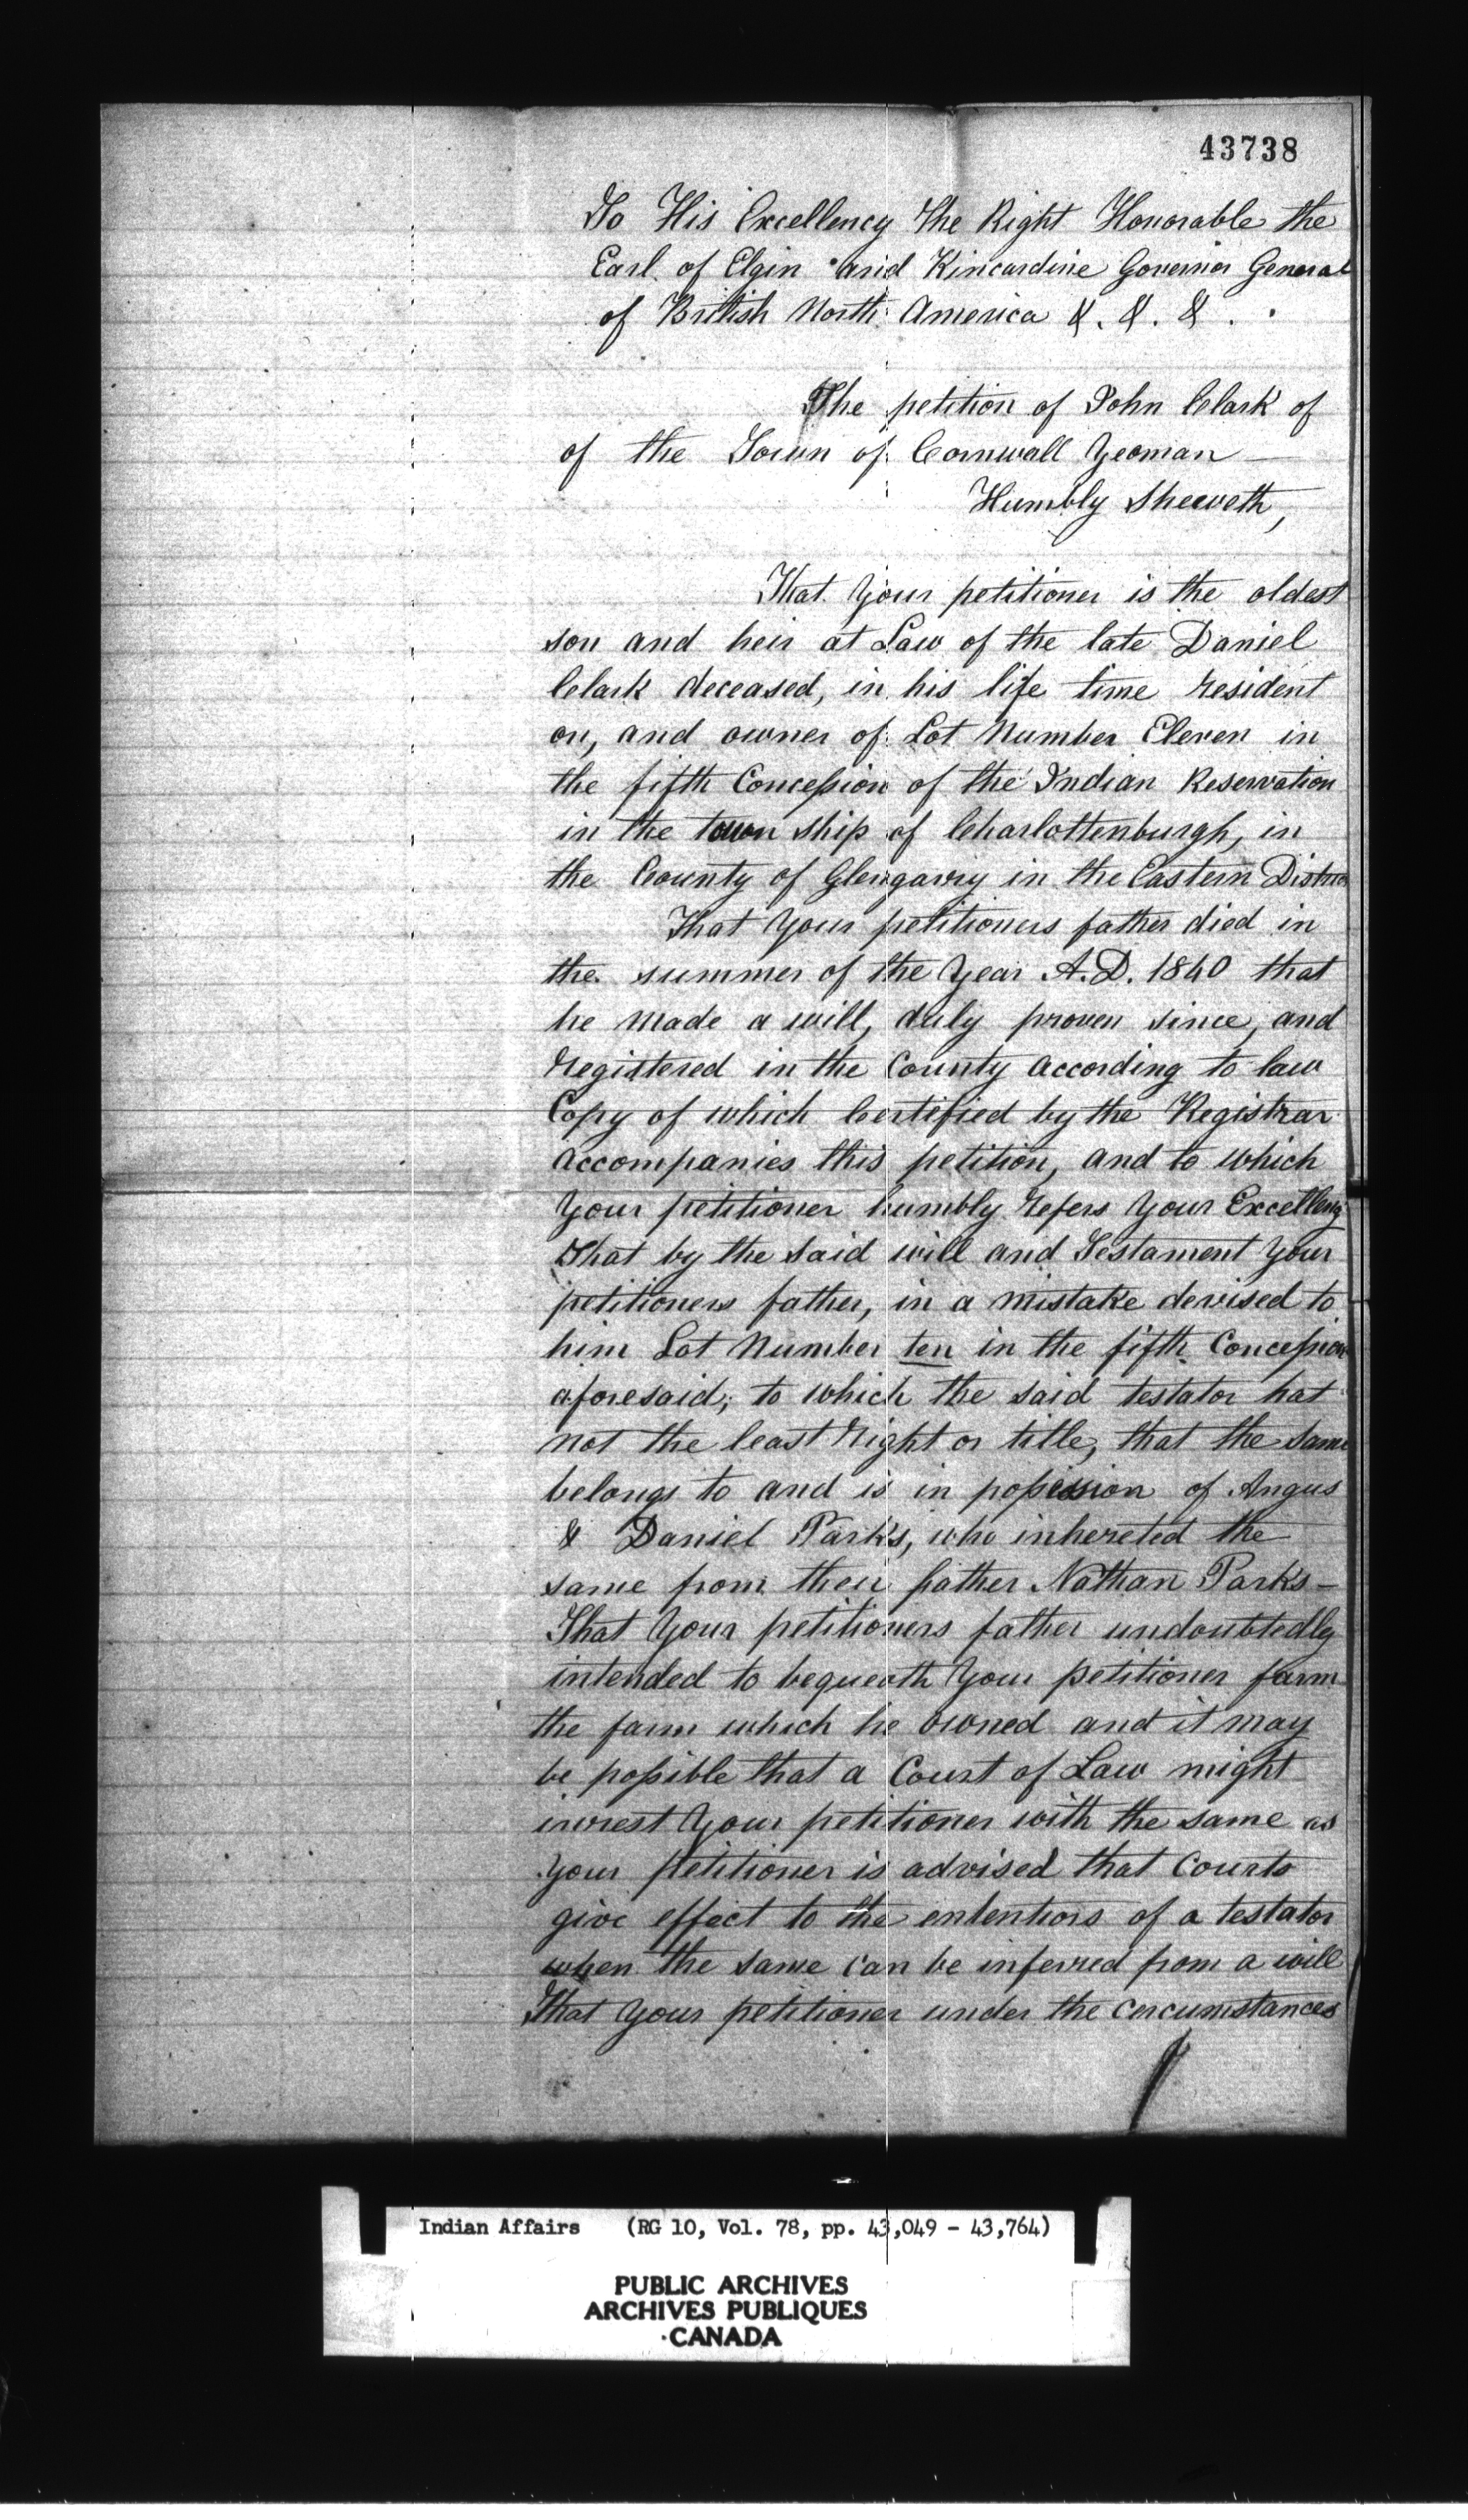 43738
To His Excellency The Right Honorable the
Earl of Elgin and Kincardine Governor General
of British North America &. &. &.
The petition of John Clark of
of the Town of Cornwall Yeoman
Humbly Sheweth,
That Your petitioner is the oldest
son and heir at Law of the late Daniel
Clark deceased, in his life time resident
on, and owner of Lot Number Eleven in
the fifth Concession of the Indian Reservation
in the town ship of Charlottenburgh, in
the County of Glengarry in the Eastern District
That Your petitioners father died in
the summer of the Year A.D. 1840 that
he made a will, duly proven since, and
registered in the County according to law
Copy of which Certified by the Registrar
accompanies this petition, and to which
Your petitioner humbly refers Your Excellency
That by the said will and Testament Your
petitioners father, in a mistake devised to
him Lot Number ten in the fifth Concession
aforesaid, to which the said testator hat
not the least right or title, that the same
belongs to and is in possession of Angus
& Daniel Parks, who inhereted the
same from their father Nathan Parks –
That Your petitioners father undoubtedly
intended to bequeath Your petitioner farm
the farm which he owned and it may
be possible that a Court of Law might
invest Your petitioner with the same as
your petitioner is advised that Courts
give effect to the entention of a testator
when the same can be inferred from a will
That Your petitioner under the circumstances
Indian Affairs (RG 10, Vol. 78, pp. 43,049 - 43,764)
PUBLIC ARCHIVES
ARCHIVES PUBLIQUES
CANADA